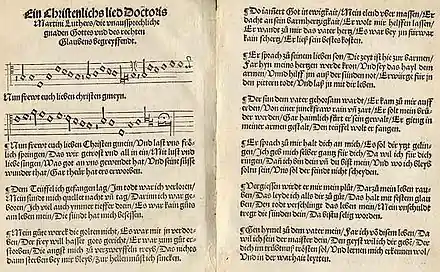 Ein Christenlichs lied Doctoris
Martini Luthers, die unaussprechliche
gnaden Gottes und des rechten
Glaubens begreyffendt.
Nun frewt euch lieben christen gmeyn.
Nun frewt euch lieben Christen gmein, Und last uns frö-
lich springen, Das wir getrost und all in ein, Mit lust und
liebe singen, Was got an uns gewendet hat, Und seine süsse
wunder that, Gar theür hat ers erworben.
Dem Teüffel ich gefangen lag, Im todt war ich verloren,
Mein sünde mich quellet nacht uñ tag, Darinn ich war ge-
boren, Ich viel auch ymmer tieffer drein, Es war kain güts
am leben mein, Die sünd hat mich besessen.
Mein güte werck die golten nicht, Es war mit in verdor-
ben, Der frey will hasset gots gericht, Er war zum güt er-
storben, Die angst mich zu verzweyfeln treyb, Das nichts
dann sterben bey mir bleyb, Zur hellen müst ich sincken.
Do jamert Got in ewigkait, Mein elend uber massen, Er
dacht an sein barmhertzigkait, Er wolt mir helffen lassen,
Er wandt zu mir das vater hertz, Es war bey jm fürwar
kain schertz, Er ließ sein bestes kosten.
Er sprach zu seinem lieben son, Die zeyt ist hie zur barmen,
Far hyn meins hertzen werde kron, Und sey das hayl dem
armen, Und hilff jm auß der sünden not, Erwürg für jn
den pittern todt, Und laß jn mit dir leben.
Der sun dem vater ghorsam wardt, Er kam zu mir auff
erden, Von einer junckfraw rain uñ zart, Er solt mein brüder
werden, Gar haimlich fürt er sein gewalt, Er gieng in
meiner armen gestalt, Den teüffel wolt er fangen.
Er sprach zu mir halt dich an mich, Es sol dir ytzt gelin-
gen, Ich gib mich selber gantz für dich, Da wil ich für dich
ringen, Dañ ich bin dein uñ du bist mein, Und wo ich bleyb
solt sein, Uns sol der feinde nicht scheyden.
Vergiessen wirdt er mir mein plüt, Darzu mein leben rau-
ben, Das leyd ich alls dir zu güt, Das halt mit festem glau-
ben, Den tod verschlingt das leben mein, Mein unschuldt
tregt die sünden dein, Da bistu selig worden.
Gen hymel zu dem vater mein, Far ich vō disem leben, Da
wil ich sein der maister dein, Den geyst wil ich dir geben, Der
dich in trübnuß trösten sol, Und lernen mich erkennen wol,
Und in der warhait leytten.